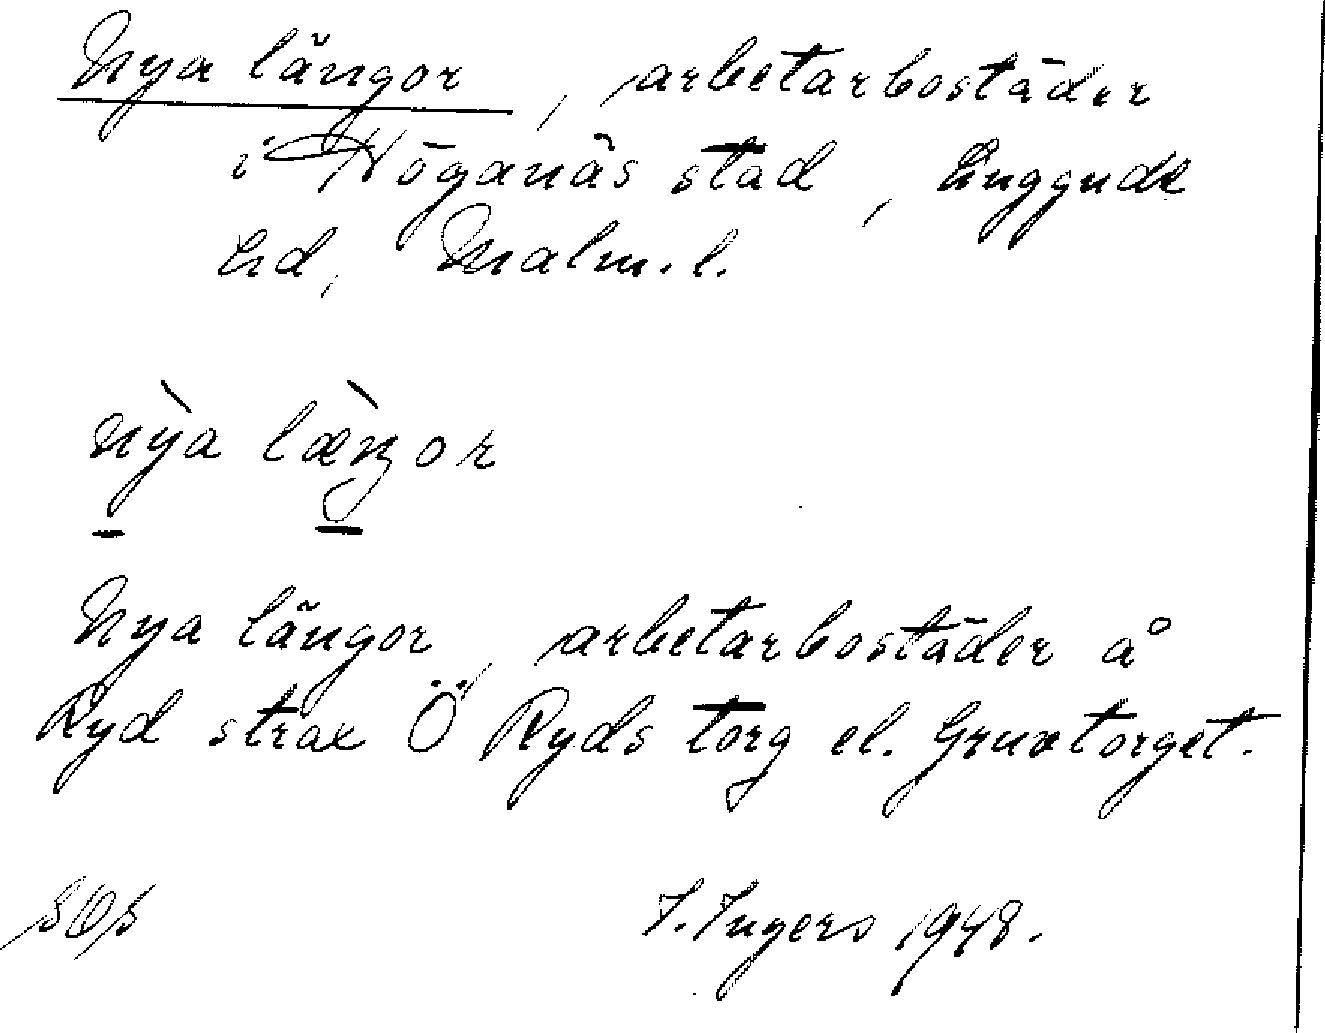 Nya längor, arbetarbostäder
i Höganäs stad, Luggude
hd, Malm. l.
nỳa læ̀ŋor
Nya längor, arbetarbostäder å
Ryd strax Ö Ryds torg el. Gruvtorget.
I. Ingers 1948.